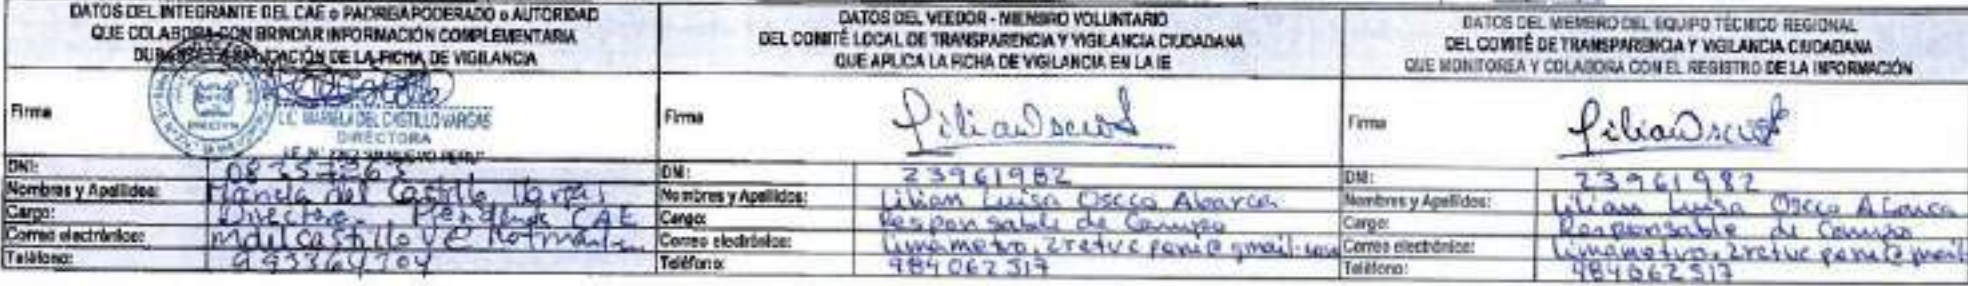 DATOS DEL INTEGRANTE DEL CAE o PADRE/APODERADO o AUTORIDAD
QUE COLABORA CON BRINDAR INFORMACIÓN COMPLEMENTARIA
DURANTE LA APLICACIÓN DE LA FICHA DE VIGILANCIA
Firma
LIC. MARIELA DEL CASTILLO VARGAS
DIRECTORA
DNI:
Nombres y Apellidos: Mariela del Castillo Vargas
Cargo: Directora CAE
Correo electrónico:
Teléfono: 993364704
DATOS DEL VEEDOR - MIEMBRO VOLUNTARIO
DEL COMITÉ LOCAL DE TRANSPARENCIA Y VIGILANCIA CIUDADANA
QUE APLICA LA FICHA DE VIGILANCIA EN LA IE
Firma
DNI: 23961982
Nombres y Apellidos: Lilian Luisa Oscco Abarca
Cargo: Responsable de Campo
Correo electrónico:
Teléfono: 984062517
DATOS DEL MIEMBRO DEL EQUIPO TÉCNICO REGIONAL
DEL COMITÉ DE TRANSPARENCIA Y VIGILANCIA CIUDADANA
QUE MONITOREA Y COLABORA CON EL REGISTRO DE LA INFORMACIÓN
Firma
DNI: 23961982
Nombres y Apellidos: Lilian Luisa Oscco Abarca
Cargo: Responsable de Campo
Correo electrónico:
Teléfono: 984062517